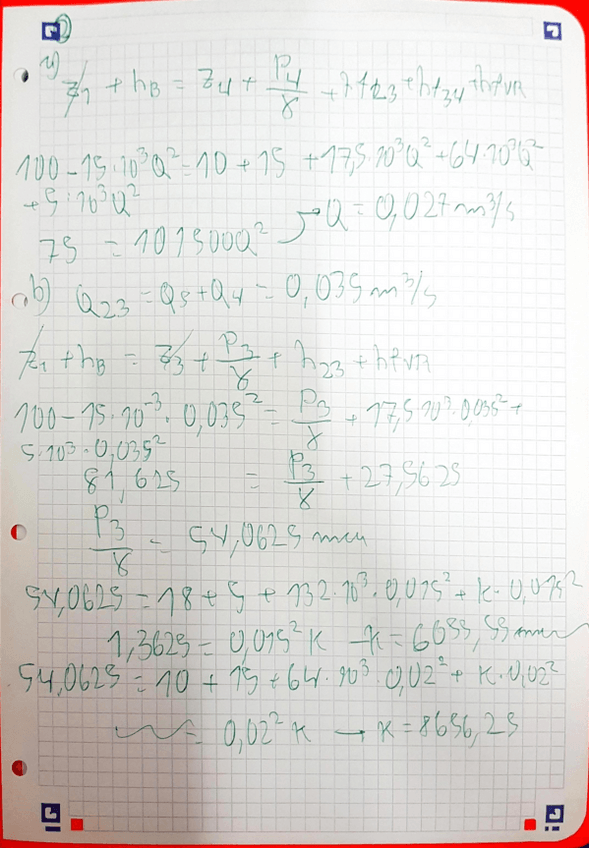 2
a)
z₁ + hB = z4 + P4/γ + hf23 + hf34 + hfVR
100 - 15·10³Q² = 10 + 15 + 17,5·10³Q² + 64·10³Q²
+ 5·10³Q²
75 = 101500Q² → Q = 0,027 m³/s
b) Q23 = Q5 + Q4 = 0,035 m³/s
z1 + hB = z3 + P3/γ + h23 + hfVR
100 - 15·10⁻³·0,035² = P3/γ + 17,5·10³·0,035² +
5·10³·0,035²
81,625 = P3/γ + 27,5625
P3/γ = 54,0625 mca
54,0625 = 18 + 5 + 132·10³·0,015² + K·0,015²
1,3625 = 0,015² K → K = 6055,55
54,0625 = 10 + 15 + 64·10³·0,02² + K·0,02²
= 0,02² K → K = 8656,25